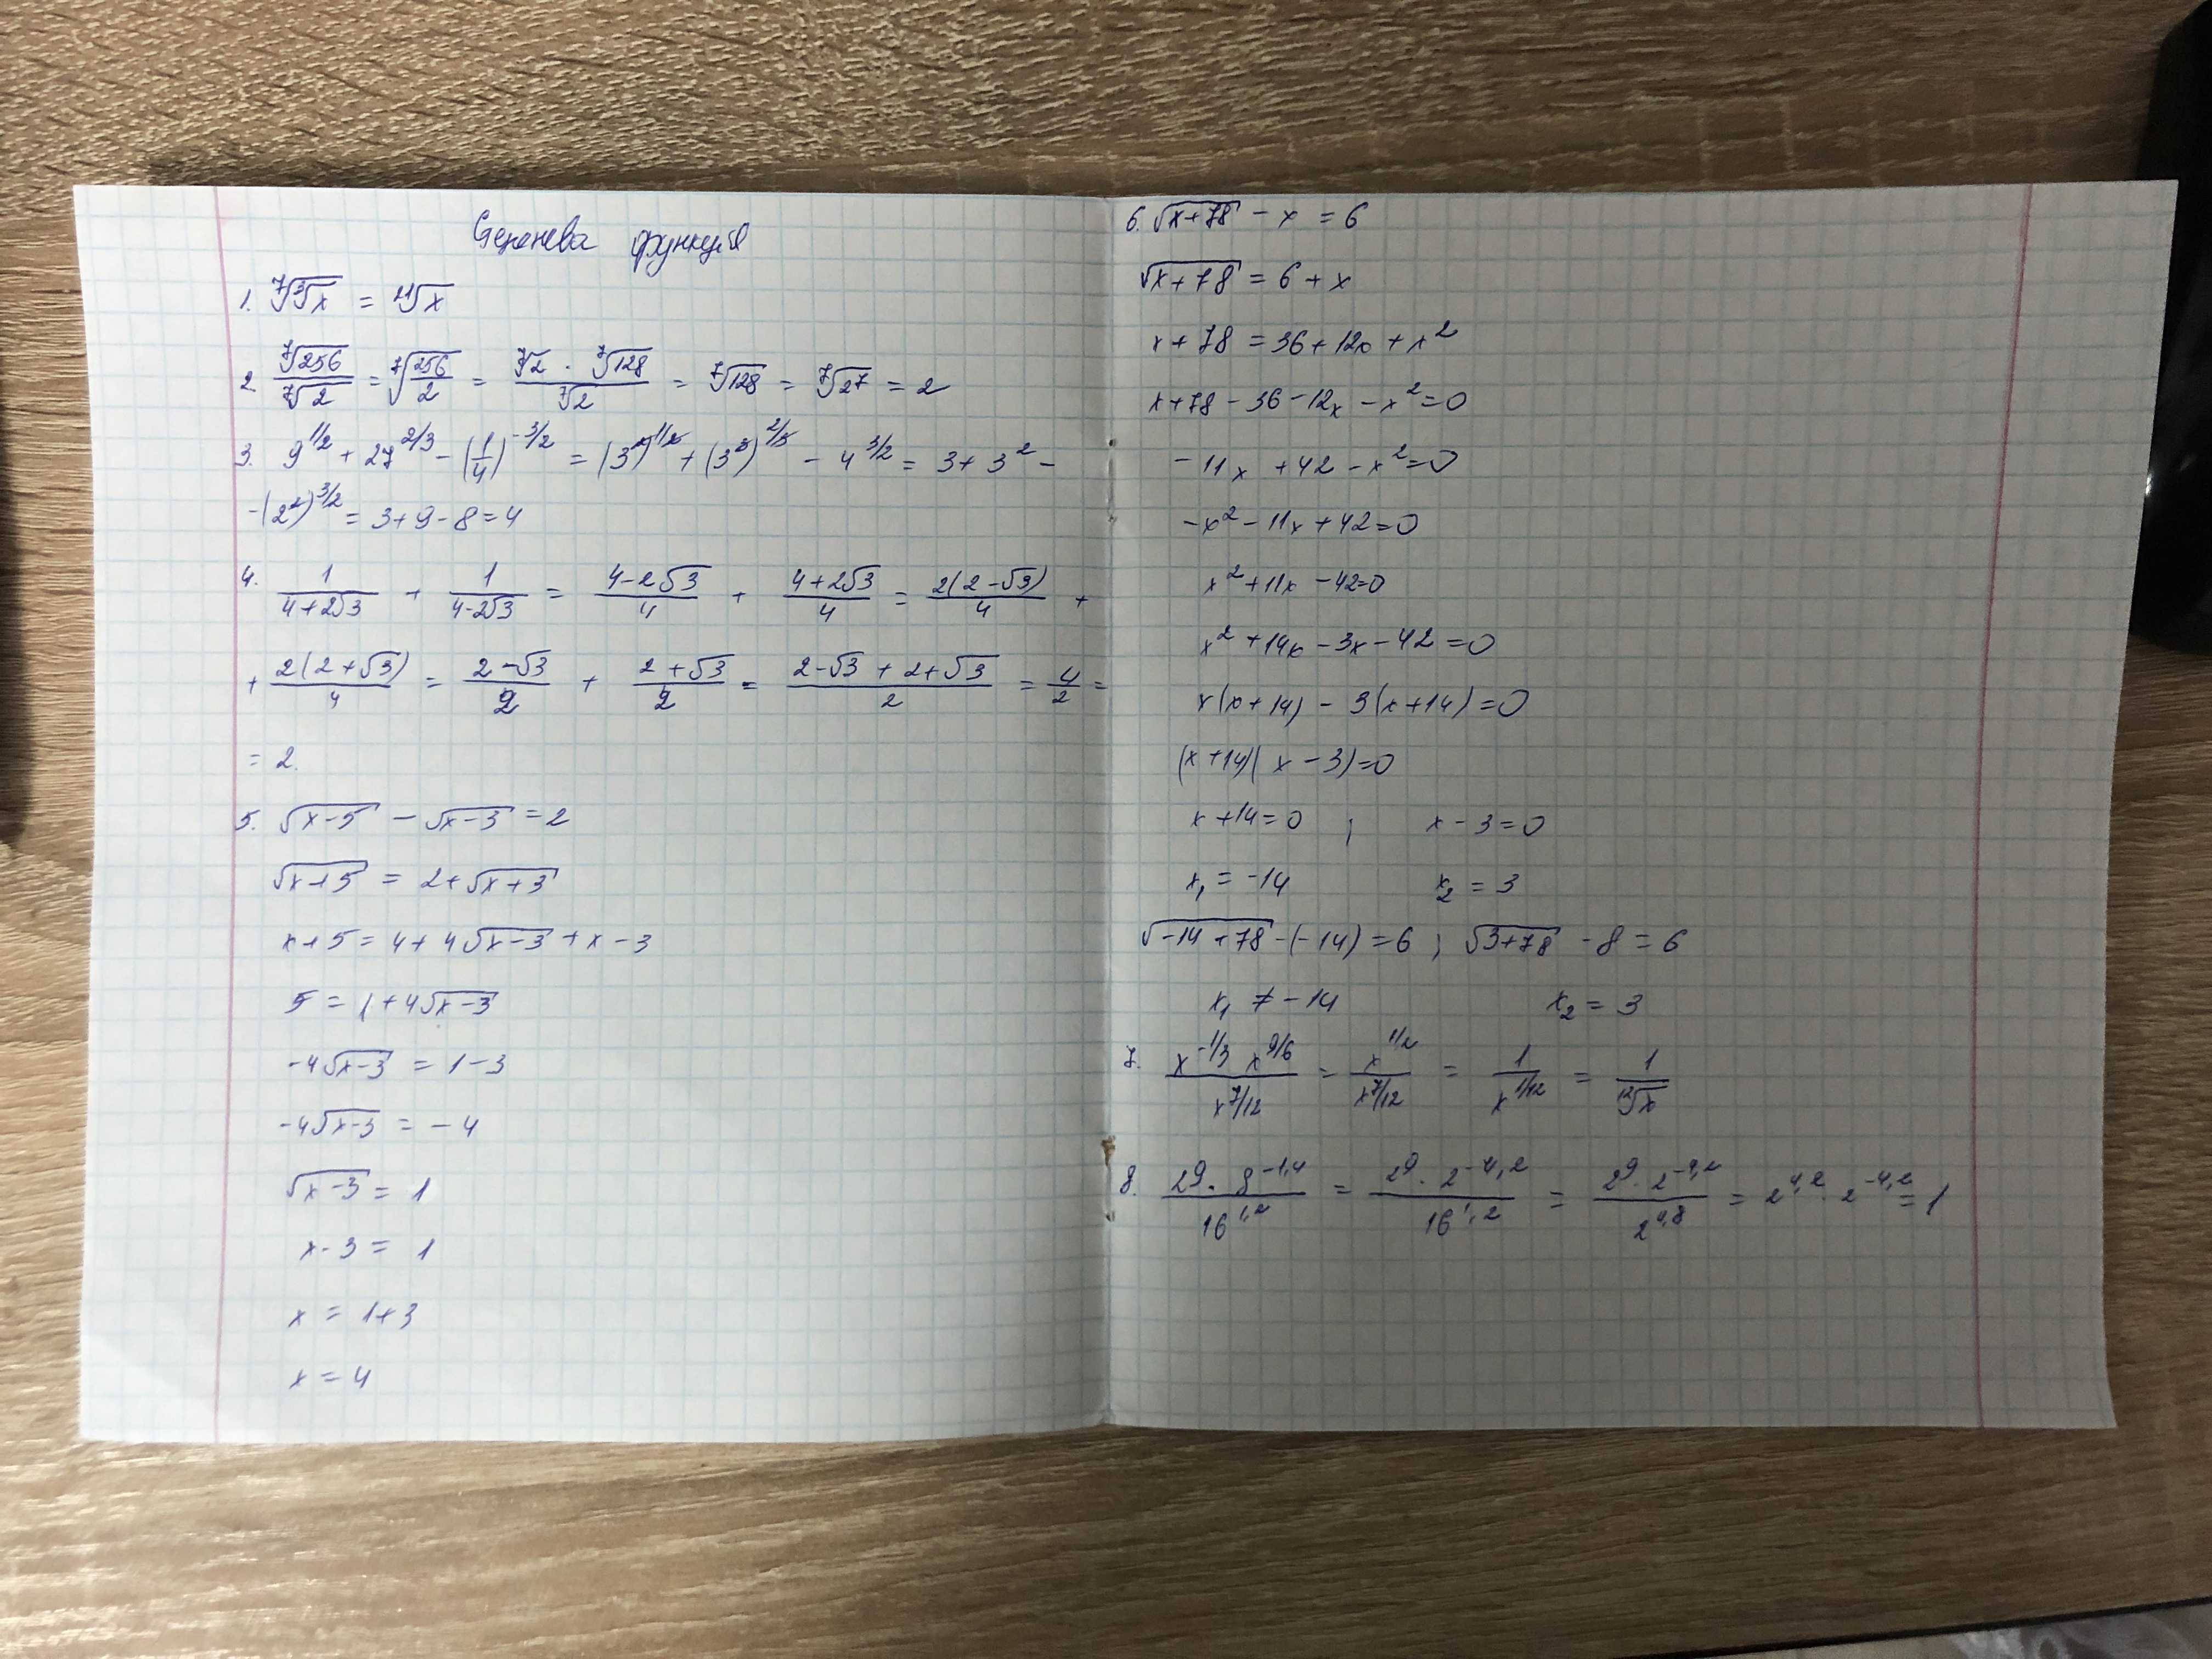 Степенева функція
1. ⁷√(³√x) = ²¹√x
2. ⁷√256 / ⁷√2 = ⁷√(256/2) = (⁷√2 · ⁷√128) / ⁷√2 = ⁷√128 = ⁷√2⁷ = 2
3. 9^(1/2) + 27^(2/3) − (1/4)^(−3/2) = (3²)^(1/2) + (3³)^(2/3) − 4^(3/2) = 3 + 3² −
−(2²)^(3/2) = 3 + 9 − 8 = 4
4. 1/(4+2√3) + 1/(4−2√3) = (4−2√3)/4 + (4+2√3)/4 = 2(2−√3)/4 +
+ 2(2+√3)/4 = (2−√3)/2 + (2+√3)/2 = (2−√3+2+√3)/2 = 4/2 =
= 2.
5. √(x−5) − √(x−3) = 2
√(x+5) = 2+√(x+3)
x+5 = 4 + 4√(x−3) + x − 3
5 = 1 + 4√(x−3)
−4√(x−3) = 1−3
−4√(x−3) = −4
√(x−3) = 1
x−3 = 1
x = 1+3
x = 4
6. √(x+78) − x = 6
√(x+78) = 6 + x
x + 78 = 36 + 12x + x²
x+78 − 36 − 12x − x² = 0
−11x + 42 − x² = 0
−x² − 11x + 42 = 0
x² + 11x − 42 = 0
x² + 14x − 3x − 42 = 0
x(x+14) − 3(x+14) = 0
(x+14)(x−3) = 0
x+14 = 0 ; x−3 = 0
x₁ = −14 x₂ = 3
√(−14+78) −(−14) = 6 ; √(3+78) − 8 = 6
x₁ ≠ −14 x₂ = 3
7. (x^(−1/3) x^(9/6)) / x^(7/12) = x^(1/2) / x^(7/12) = 1/x^(1/12) = 1/¹²√x
8. (2⁹ · 8^(−1,4)) / 16^(1,2) = (2⁹ · 2^(−4,2)) / 16^(1,2) = (2⁹ · 2^(−4,2)) / 2^(4,8) = 2^(4,2) · 2^(−4,2) = 1